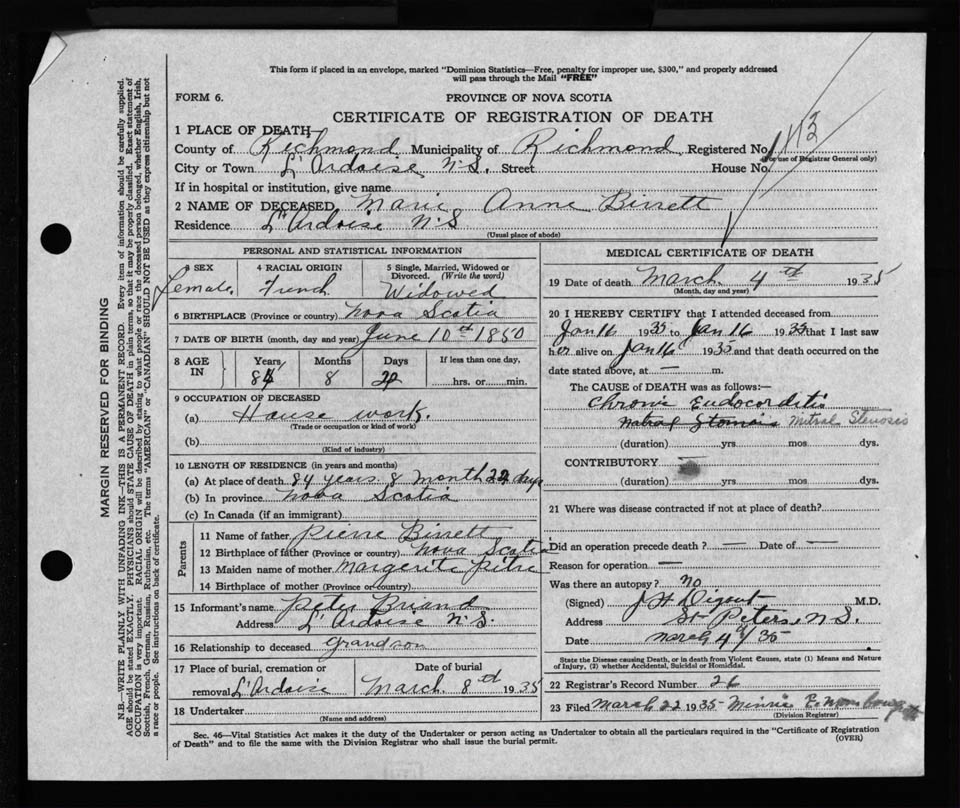 This form if placed in an envelope, marked "Dominion Statistics—Free, penalty for improper use, $300," and properly addressed
will pass through the Mail "FREE"
FORM 6.
PROVINCE OF NOVA SCOTIA
CERTIFICATE OF REGISTRATION OF DEATH
1 PLACE OF DEATH
County of Richmond Municipality of Richmond Registered No.
(For use of Registrar General only)
City or Town L'Ardoise N.S. Street House No.
If in hospital or institution, give name
2 NAME OF DECEASED Marie Anne Birrett
Residence L'Ardoise N.S
(Usual place of abode)
PERSONAL AND STATISTICAL INFORMATION
3 SEX 4 RACIAL ORIGIN 5 Single, Married, Widowed or Divorced. (Write the word)
Female. French Widowed
6 BIRTHPLACE (Province or country) Nova Scotia
7 DATE OF BIRTH (month, day and year) June 10th 1850
8 AGE IN Years Months Days If less than one day,
84 8 hrs. or min.
9 OCCUPATION OF DECEASED
(a) House work.
(Trade or occupation or kind of work)
(b)
(Kind of industry)
10 LENGTH OF RESIDENCE (in years and months)
(a) At place of death 84 years 8 month 22 days
(b) In province Nova Scotia
(c) In Canada (if an immigrant)
Parents
11 Name of father Pierre Birrett
12 Birthplace of father (Province or country) Nova Scotia
13 Maiden name of mother Margerite Pitre
14 Birthplace of mother (Province or country)
15 Informant's name Peter Briand
Address L'Ardoise N.S.
16 Relationship to deceased grandson
17 Place of burial, cremation or removal L'Ardoise Date of burial March 8th 1935
18 Undertaker
(Name and address)
MEDICAL CERTIFICATE OF DEATH
19 Date of death March 4th 1935
(Month, day and year)
20 I HEREBY CERTIFY that I attended deceased from
Jan 16 1935 to Jan 16 1935 that I last saw
her alive on Jan 16 1935 and that death occurred on the
date stated above, at — m.
The CAUSE of DEATH was as follows:—
Chronic Endocorditis
Mitral Stenosis
(duration) yrs. mos. dys.
CONTRIBUTORY
(duration) yrs. mos. dys.
21 Where was disease contracted if not at place of death?
Did an operation precede death? — Date of —
Reason for operation —
Was there an autopsy? No
(Signed) J H Digout M.D.
Address St. Peters, N.S.
Date March 4th/35
State the Disease causing Death, or in death from Violent Causes, state (1) Means and Nature
of Injury, (2) whether Accidental, Suicidal or Homicidal.
22 Registrar's Record Number 26
23 Filed March 22 1935 Minnie
(Division Registrar)
Sec. 46—Vital Statistics Act makes it the duty of the Undertaker or person acting as Undertaker to obtain all the particulars required in the "Certificate of Registration
of Death" and to file the same with the Division Registrar who shall issue the burial permit.
(OVER)
MARGIN RESERVED FOR BINDING
N.B.—WRITE PLAINLY WITH UNFADING INK—THIS IS A PERMANENT RECORD. Every item of information should be carefully supplied.
AGE should be stated EXACTLY. PHYSICIANS should STATE CAUSE OF DEATH in plain terms, so that it may be properly classified. Exact statement of
OCCUPATION is very important. RACIAL ORIGIN will be described by stating to what people or race the deceased person belonged, whether English, Irish,
Scottish, French, German, Russian, Ruthenian, etc. The terms "AMERICAN" or "CANADIAN" SHOULD NOT BE USED as they express citizenship but not
a race or people. See instructions on back of certificate.